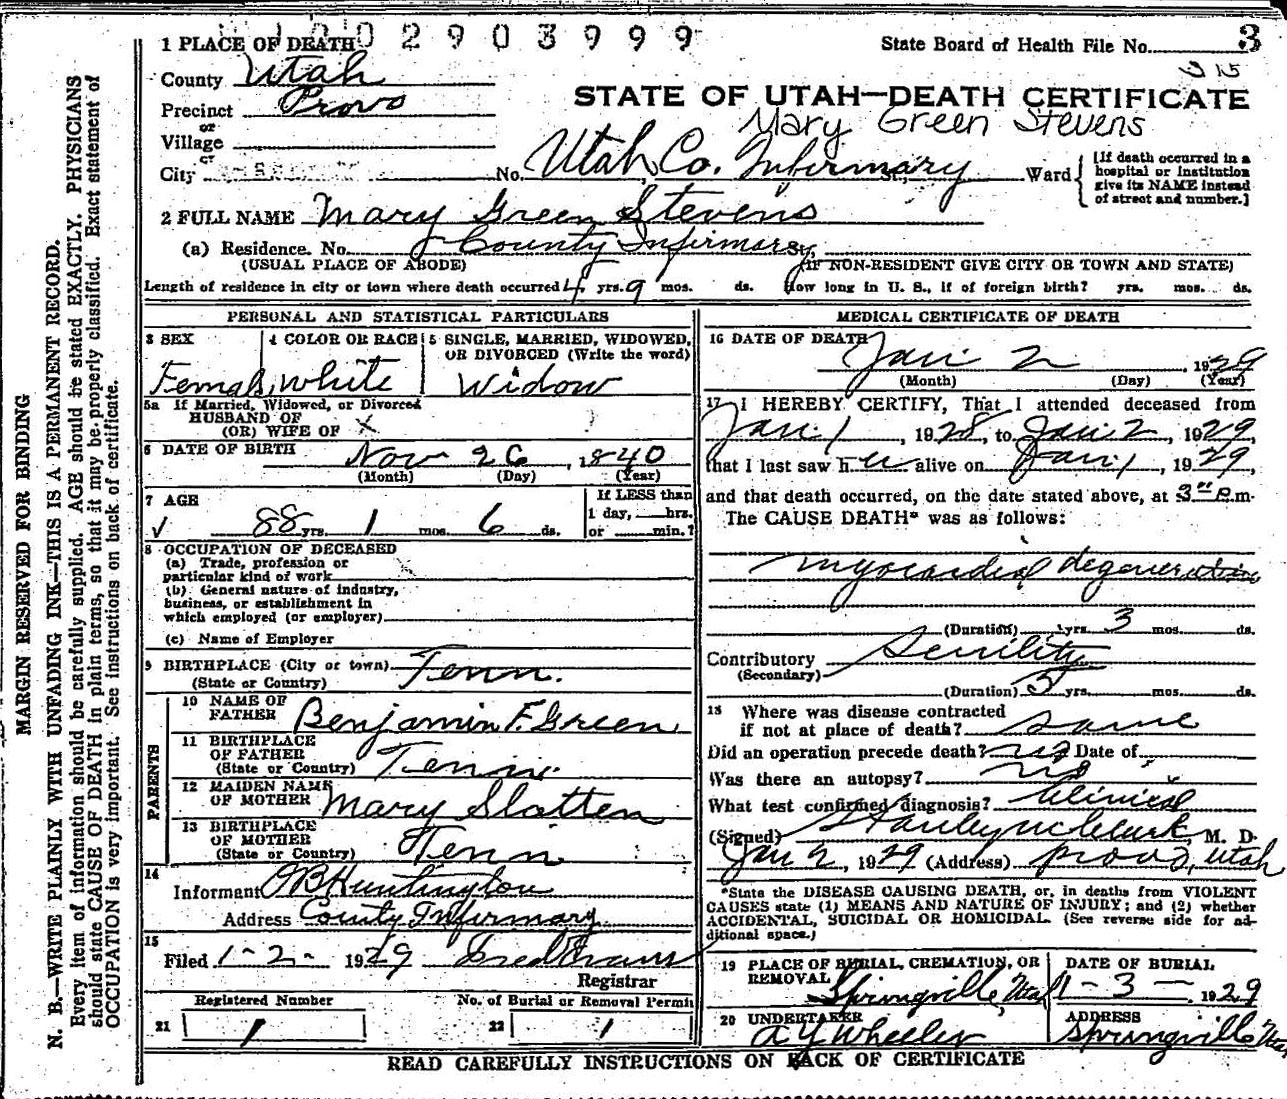 2 0 2 9 0 3 9 9 9
1 PLACE OF DEATH
State Board of Health File No. 3
County Utah
Precinct Provo
STATE OF UTAH—DEATH CERTIFICATE
or
Village
Mary Green Stevens
or
City No. Utah Co. Infirmary St., Ward
[If death occurred in a
hospital or institution
give its NAME instead
of street and number.]
2 FULL NAME Mary Green Stevens
(a) Residence. No. County Infirmary St,
(USUAL PLACE OF ABODE) (IF NON-RESIDENT GIVE CITY OR TOWN AND STATE)
Length of residence in city or town where death occurred 4 yrs. 9 mos. ds. How long in U. S., if of foreign birth? yrs. mos. ds.
PERSONAL AND STATISTICAL PARTICULARS
3 SEX
Female
4 COLOR OR RACE
White
5 SINGLE, MARRIED, WIDOWED,
OR DIVORCED (Write the word)
Widow
5a If Married, Widowed, or Divorced
HUSBAND OF
(OR) WIFE OF X
6 DATE OF BIRTH Nov 26, 1840
(Month) (Day) (Year)
7 AGE
√ 88 yrs. 1 mos. 6 ds.
If LESS than
1 day, hrs.
or min.?
8 OCCUPATION OF DECEASED
(a) Trade, profession or
particular kind of work
(b) General nature of industry,
business, or establishment in
which employed (or employer)
(c) Name of Employer
9 BIRTHPLACE (City or town) Tenn.
(State or Country)
PARENTS
10 NAME OF
FATHER Benjamin F. Green
11 BIRTHPLACE
OF FATHER
(State or Country) Tenn.
12 MAIDEN NAME
OF MOTHER Mary Slatten
13 BIRTHPLACE
OF MOTHER
(State or Country) Tenn
14
Informant Huntington
Address County Infirmary
15
Filed 1-2- 1929 Fred Evans
Registrar
Registered Number No. of Burial or Removal Permit
21 1 22 1
MEDICAL CERTIFICATE OF DEATH
16 DATE OF DEATH
Jan 2, 1929
(Month) (Day) (Year)
17 I HEREBY CERTIFY, That I attended deceased from
Jan 1, 1928, to Jan 2, 1929,
that I last saw h er alive on Jan 1, 1929,
and that death occurred, on the date stated above, at 3 P.m.
The CAUSE DEATH* was as follows:
Myocardial degeneration
(Duration) yrs. 3 mos. ds.
Contributory Senility
(Secondary)
(Duration) 5 yrs. mos. ds.
18 Where was disease contracted
if not at place of death? same
Did an operation precede death? no Date of
Was there an autopsy? no
What test confirmed diagnosis? Clinical
(Signed) Stanley M. Clark, M. D.
Jan 2, 1929 (Address) Provo, Utah
*State the DISEASE CAUSING DEATH, or, in deaths from VIOLENT
CAUSES state (1) MEANS AND NATURE OF INJURY; and (2) whether
ACCIDENTAL, SUICIDAL OR HOMICIDAL. (See reverse side for ad-
ditional space.)
19 PLACE OF BURIAL, CREMATION, OR
REMOVAL
Springville, Utah
DATE OF BURIAL
1 - 3 - 1929
20 UNDERTAKER
A Y Wheeler
ADDRESS
Springville Utah
READ CAREFULLY INSTRUCTIONS ON BACK OF CERTIFICATE
MARGIN RESERVED FOR BINDING
N. B.—WRITE PLAINLY WITH UNFADING INK—THIS IS A PERMANENT RECORD.
Every item of information should be carefully supplied. AGE should be stated EXACTLY. PHYSICIANS
should state CAUSE OF DEATH in plain terms, so that it may be properly classified. Exact statement of
OCCUPATION is very important. See instructions on back of certificate.